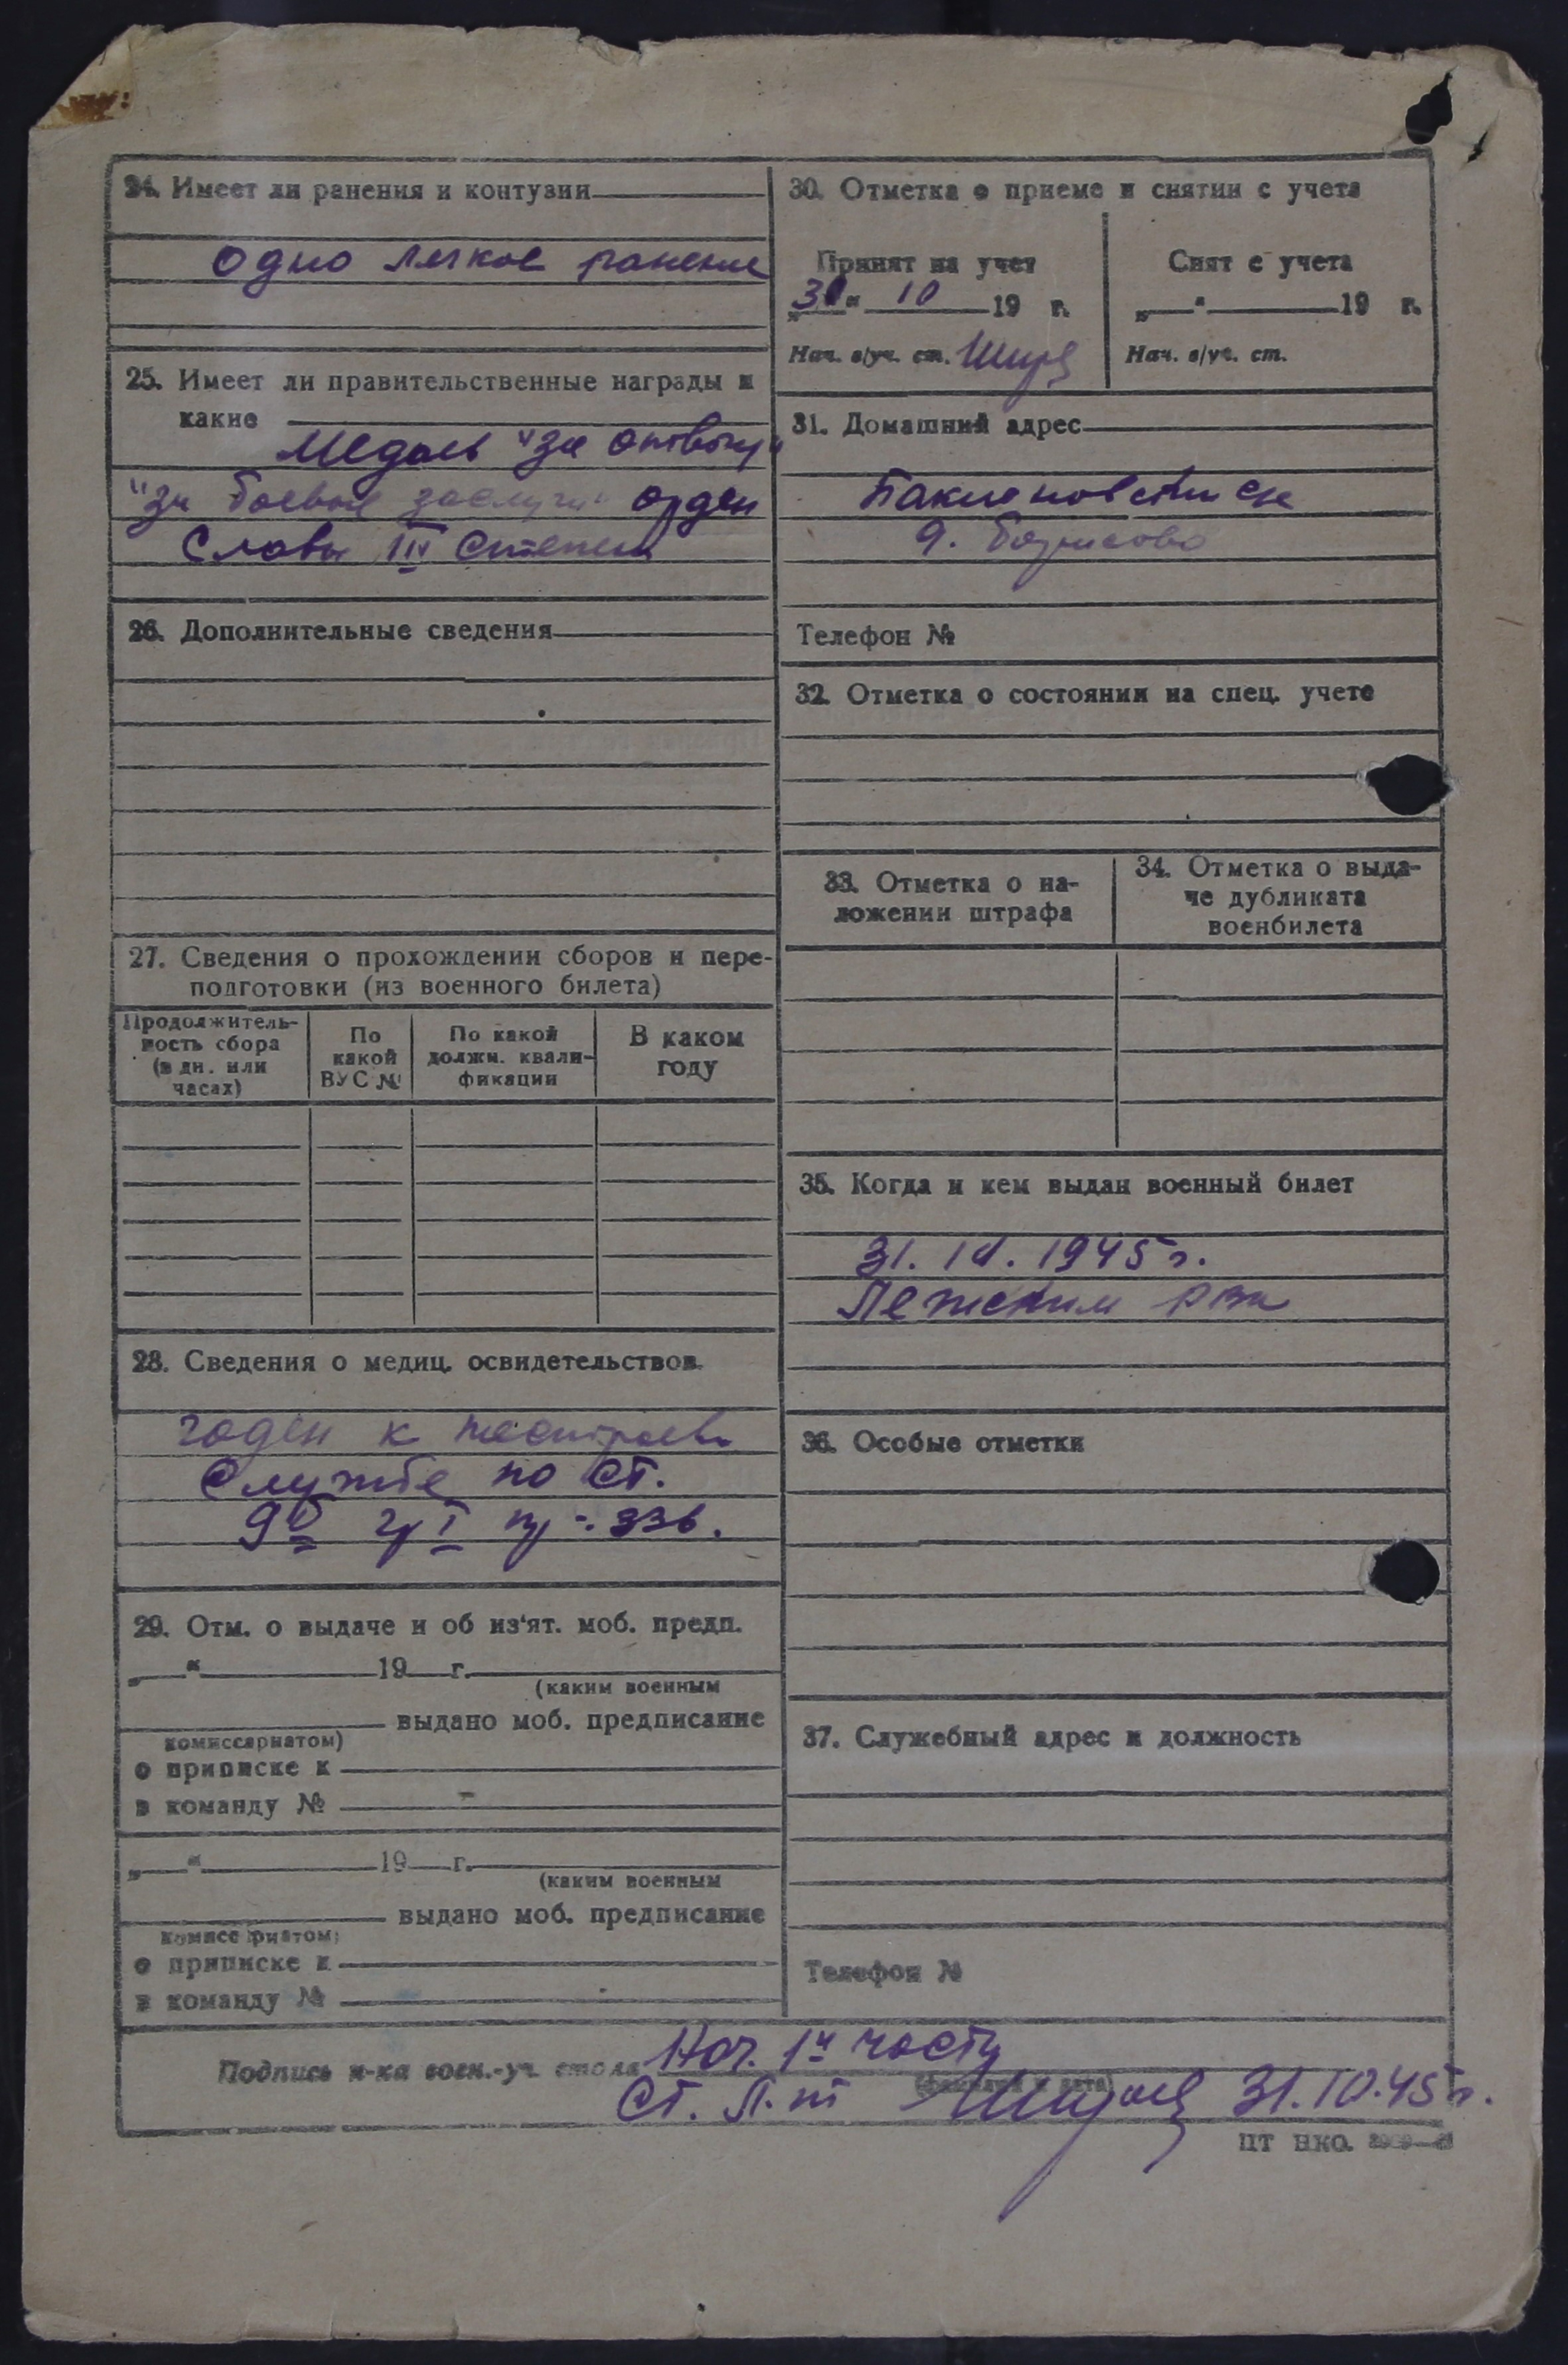 24. Имеет ли ранения и контузии
одно легкое ранение
25. Имеет ли правительственные награды и
какие
Медаль "за отвагу"
"за боевые заслуги" орден
Славы III степени
26. Дополнительные сведения
27. Сведения о прохождении сборов и пере-
подготовки (из военного билета)
Продолжитель-
ность сбора
(в дн. или
часах)
По
какой
ВУС №
По какой
должн. квали-
фикации
В каком
году
28. Сведения о медиц. освидетельствов.
годен к
службе по ст.
336.
29. Отм. о выдаче и об из'ят. моб. предп.
„ “ 19 г.
(каким военным
выдано моб. предписание
комиссариатом)
о приписке к
в команду №
„ “ 19 г.
(каким военным
выдано моб. предписание
комиссариатом)
о приписке к
в команду №
30. Отметка о приеме и снятии с учета
Принят на учет
„ “ 10 19 г.
Нач. в/уч. ст.
Снят с учета
„ “ 19 г.
Нач. в/уч. ст.
31. Домашний адрес
д. Борисово
Телефон №
32. Отметка о состоянии на спец. учете
33. Отметка о на-
ложении штрафа
34. Отметка о выда-
че дубликата
военбилета
35. Когда и кем выдан военный билет
31. 10. 1945 г.
Лежским РВК
36. Особые отметки
37. Служебный адрес и должность
Телефон №
Подпись н-ка воен.-уч. стола Нач. 1й части
(фамилия и дата)
Ст. Л-т 31.10.45 г.
ЦТ НКО.